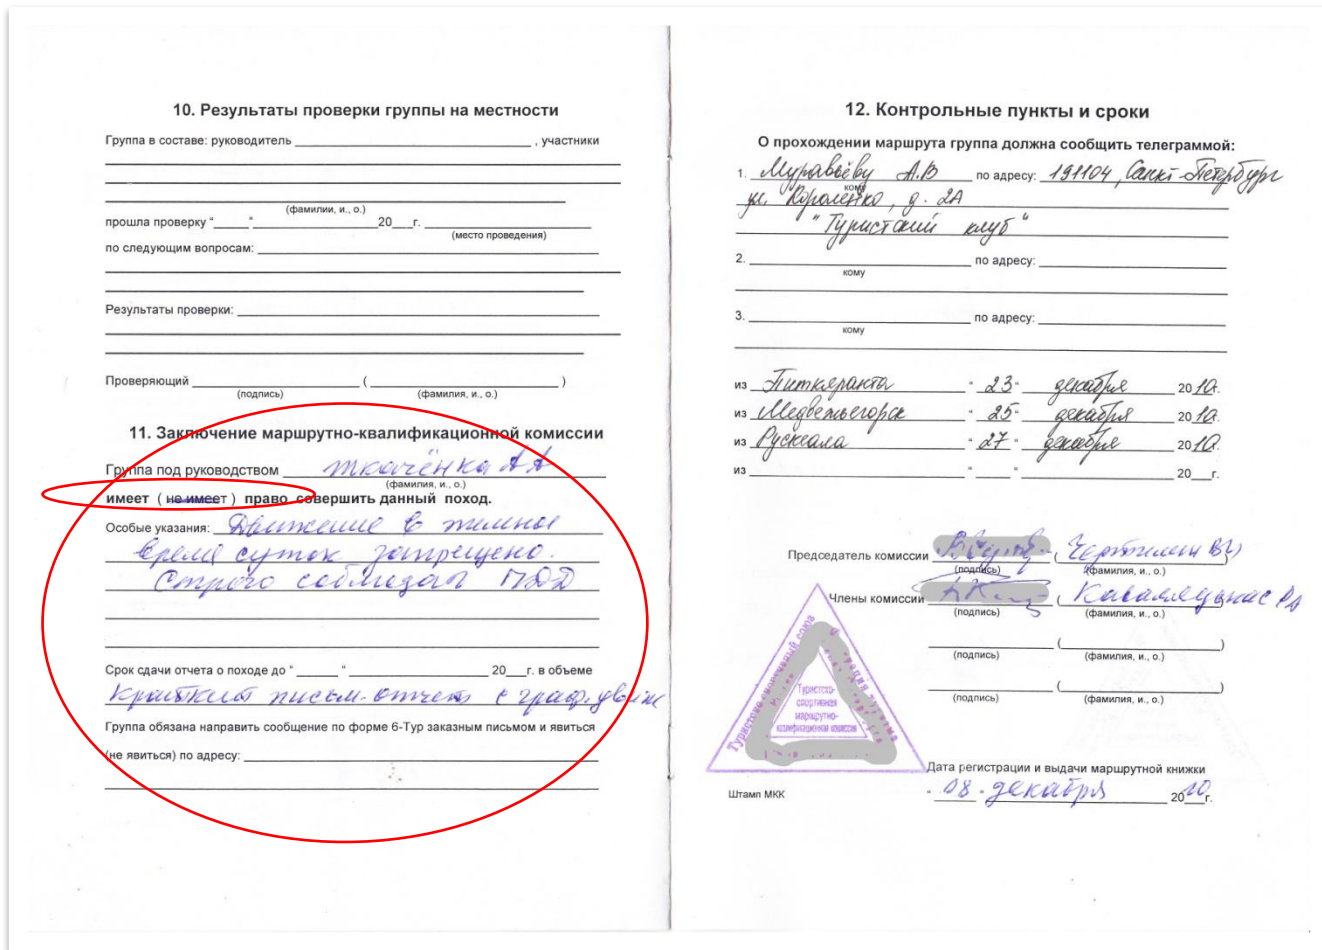 10. Результаты проверки группы на местности
Группа в составе: руководитель ____________ , участники
(фамилии, и., о.)
прошла проверку “_____“ ____________20___г. ____________
(место проведения)
по следующим вопросам: ____________
Результаты проверки: ____________
Проверяющий ____________ ( ____________ )
(подпись) (фамилия, и., о.)
11. Заключение маршрутно-квалификационной комиссии
Группа под руководством Ткачёнка А А
(фамилия, и., о.)
имеет ( не имеет ) право совершить данный поход.
Особые указания: Движение в темное
время суток запрещено.
Строго соблюдать ПДД
Срок сдачи отчета о походе до “ ______ “ ____________ 20___г. в объеме
Краткий письм. отчет с граф. движ
Группа обязана направить сообщение по форме 6-Тур заказным письмом и явиться
(не явиться) по адресу: ____________
12. Контрольные пункты и сроки
О прохождении маршрута группа должна сообщить телеграммой:
1. Муравьёву А.В по адресу: 191104, Санкт-Петербург
кому
ул. Короленко, д. 2А
"Туристский клуб"
2. ____________ по адресу: ____________
кому
3. ____________ по адресу: ____________
кому
из Питкяранта “ 23 “ декабря 2010г.
из Медвежьегорск “ 25 “ декабря 2010г.
из Рускеала “ 27 “ декабря 2010г.
из ____________ “____“ ____________ 20___г.
Председатель комиссии ( )
(подпись) (фамилия, и., о.)
Члены комиссии ( )
(подпись) (фамилия, и., о.)
( )
(подпись) (фамилия, и., о.)
( )
(подпись) (фамилия, и., о.)
Туристско-спортивный союз
туризма
Туристско-
спортивная
маршрутно-
квалификационная комиссия
Дата регистрации и выдачи маршрутной книжки
Штамп МКК
“ 08 “ декабря 2010г.